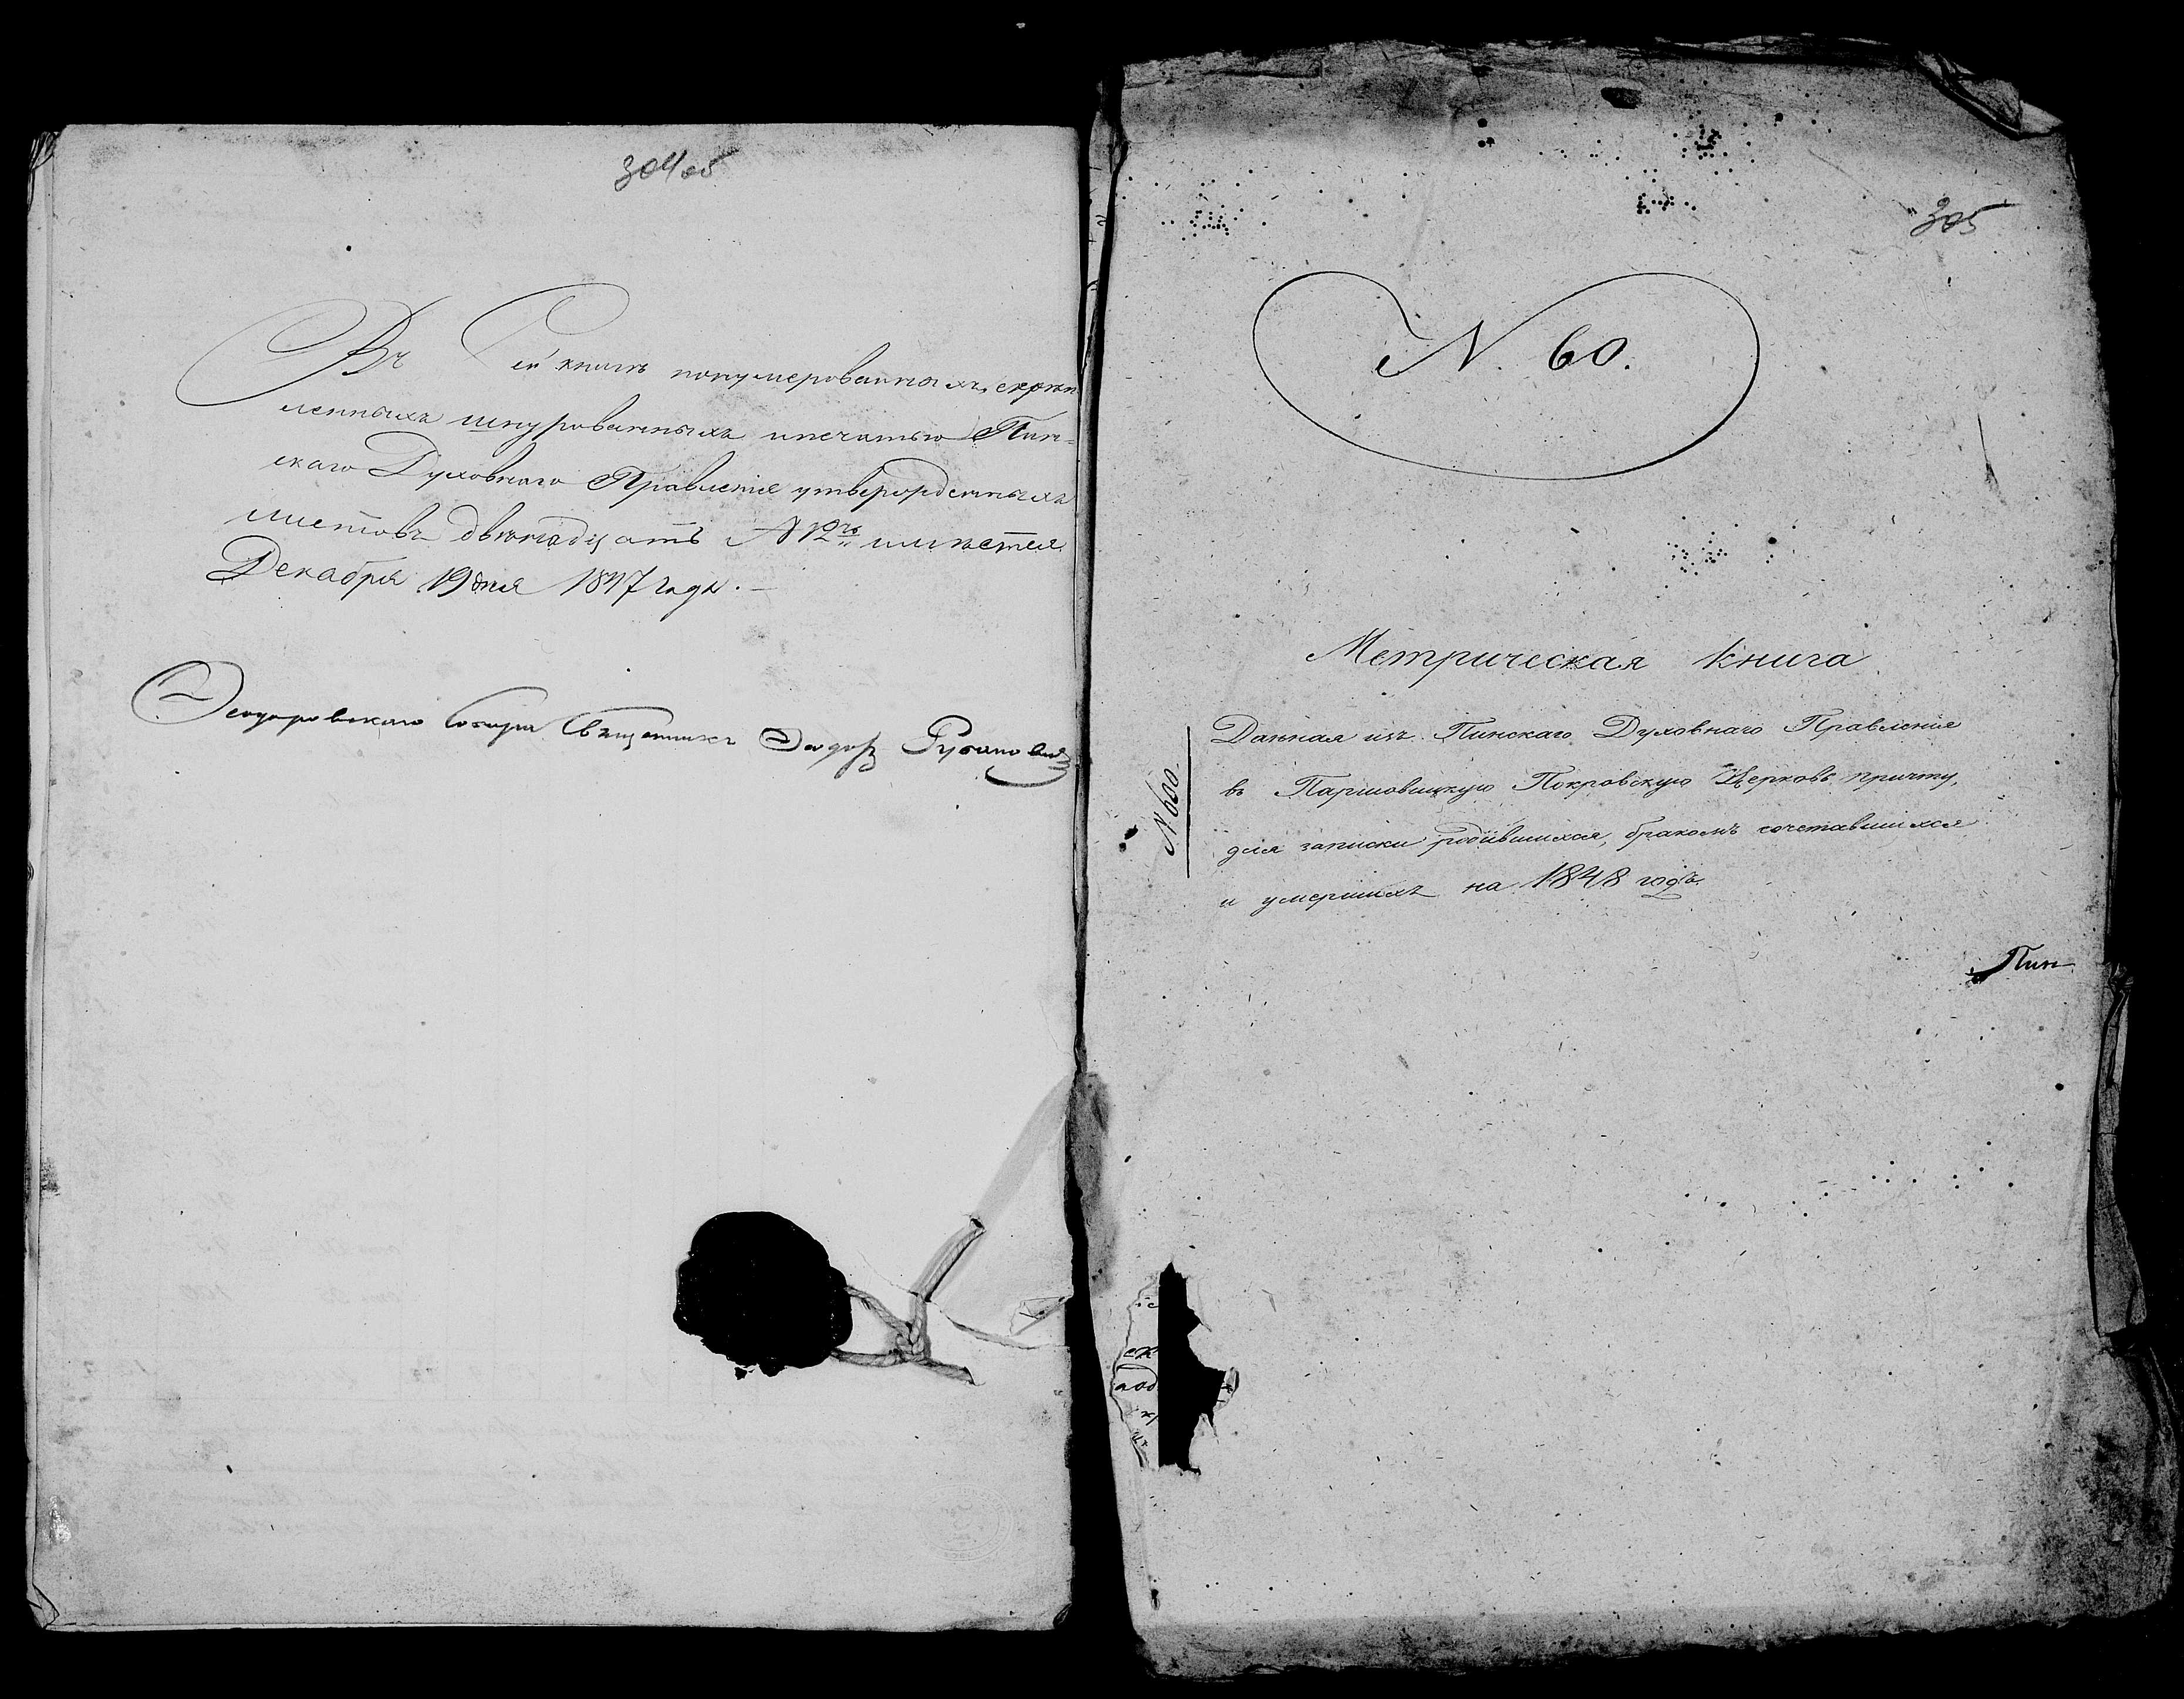 304 об
Въ Сей книгѣ понумерованныхъ, скрѣп
ленныхъ шнурованныхъ и печатью Пин=
скаго Духовнаго Правленія утвержденныхъ
листовъ двѣнадцать N 12ть имѣется.
Декабря 19 дня 1847 года. —
Ѳеодоровскаго Собора Священникъ Ѳеодоръ
305
N. 60.
Метрическая книга
Данная изъ Пинскаго Духовнаго Правленія
въ Паршовицкую Покровскую Церковь причту,
для записки родившихся, бракомъ сочетавшихся
и умершихъ на 1848 годъ.
N 600.
Пин-